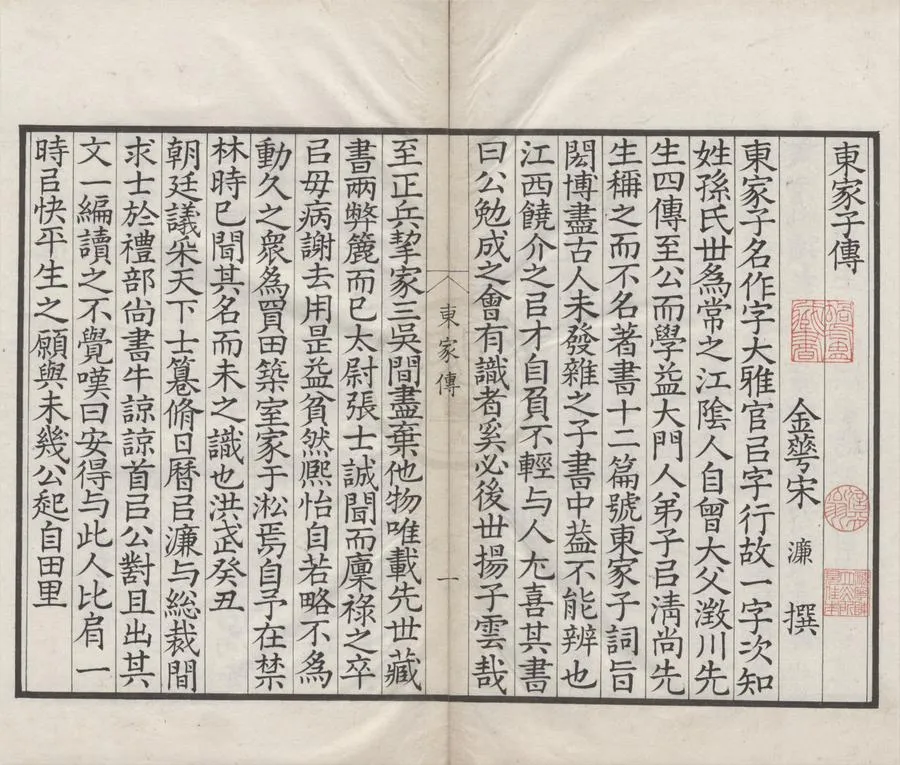 東家子傳
金華宋 濂 撰
東家子名作字大雅官㠯字行故一字次知
姓孫氏世爲常之江陰人自曾大父澂川先
生四傳至公而學益大門人弟子㠯清尚先
生稱之而不名著書十二篇號東家子詞旨
閎博盡古人未發雜之子書中葢不能辨也
江西饒介之㠯才自負不輕与人尤喜其書
曰公勉成之會有識者奚必後世揚子雲哉
東家傳
一
至正兵挈家三吳間盡棄他物唯載先世藏
書兩弊簏而已太尉張士誠聞而廩祿之卒
㠯母病謝去用是益貧然熙怡自若略不爲
動久之衆爲買田築室家于淞焉自予在禁
林時已聞其名而未之識也洪武癸丑
朝廷議采天下士篹脩日曆㠯濂与総裁間
求士於禮部尚書牛諒諒首㠯公對且出其
文一編讀之不覺嘆曰安得与此人比肩一
時㠯快平生之願與未幾公起自田里